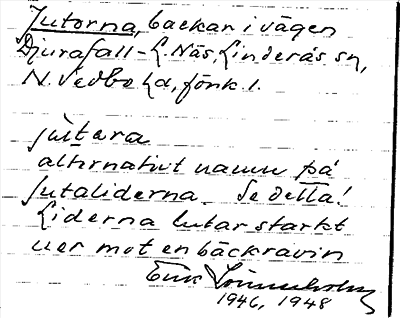 Jutorna, backar i vägen
Djurafall - L. Näs, Linderås sn,
N. Vedbo hd, Jönk. l.
jùtara
alternativt namn på
Jutaliderna. Se detta!
Liderna lutar starkt
ner mot en bäckravin
Erik
1946, 1948